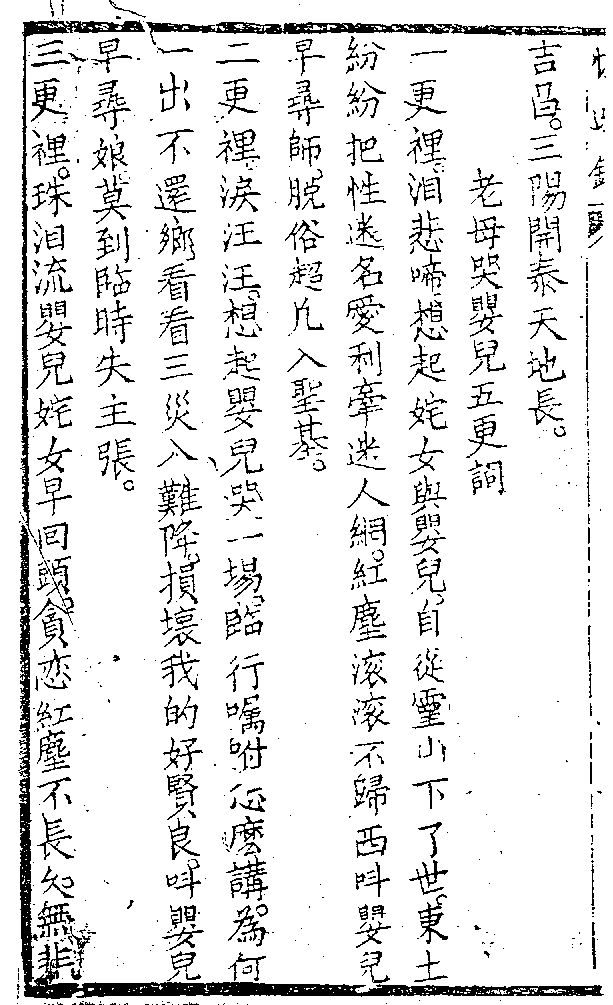 吉昌。三陽開泰天地長。
老母哭嬰兒五更詞
一更裡。泪悲啼。想起姹女與嬰兒。自從靈山下了世。東土
紛紛把性迷名愛利牽迷人網。紅塵滾滾不歸西呌嬰兒
早尋師。脱俗超凡入聖基。
二更裡。淚汪汪。想起嬰兒哭一場。臨行囑咐怎麽講。為何
一出不還鄉看看三災入難降。損壞我的好賢良。呌嬰兒
早尋娘。莫到臨時失主張。
三更裡。珠泪流嬰兒姹女早回頭。貪恋紅塵不長久。無非